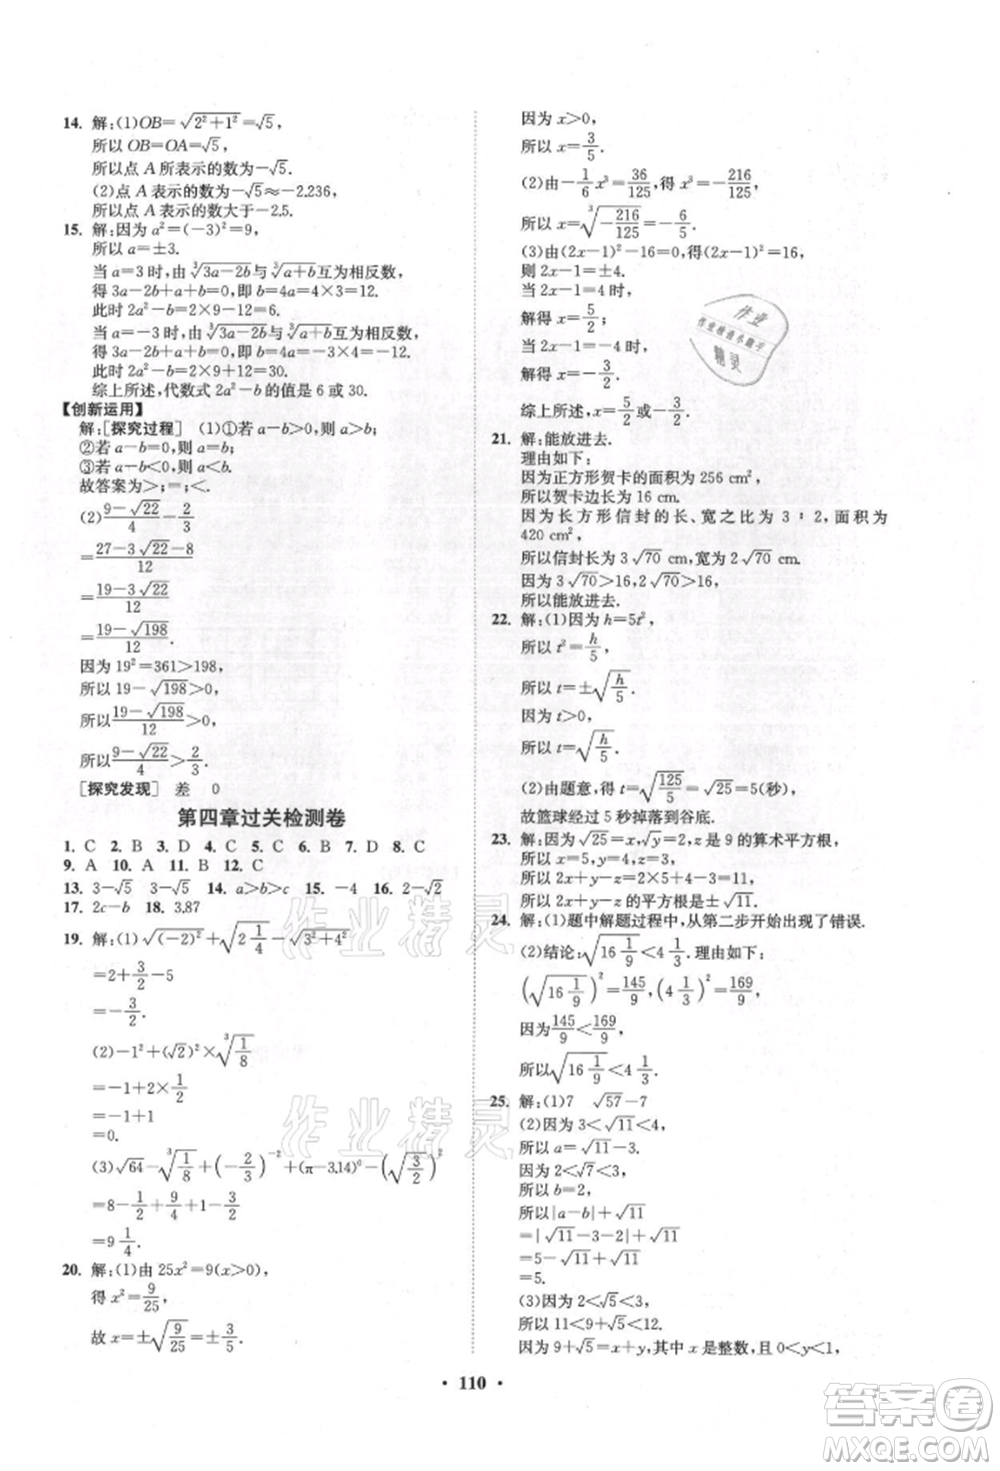 14. 解:(1)OB=√(2²+1²)=√5,
所以 OB=OA=√5,
所以点 A 所表示的数为−√5.
(2)点 A 表示的数为−√5≈−2.236,
所以点 A 表示的数大于−2.5.
15. 解:因为 a²=(−3)²=9,
所以 a=±3.
当 a=3 时,由 ∛(3a−2b)与∛(a+b)互为相反数,
得 3a−2b+a+b=0,解得 b=12.
此时 2a²−b=2×9−12=6.
当 a=−3 时,由∛(3a−2b)与∛(a+b)互为相反数,
得 3a−2b+a+b=0,解得 b=−12.
此时 2a²−b=2×9+12=30.
综上所述,代数式 2a²−b 的值是 6 或 30.
【创新运用】
解:[探究过程] (1)①若 a−b>0,则 a>b;
②若 a−b=0,则 a=b;
③若 a−b<0,则 a<b.
故答案为>;=;<.
(2)(9−√22)/4−2/3
=(27−3√22−8)/12
=(19−3√22)/12
=(19−√198)/12
因为 19²=361>198,
所以 19−√198>0,
所以(19−√198)/12>0,
所以(9−√22)/4>2/3.
[探究发现] 差 0
第四章过关检测卷
1. C 2. B 3. D 4. C 5. C 6. B 7. D 8. C
9. A 10. A 11. B 12. C
13. 3−√5 √5 14. a>b>c 15. −4 16. 2−√2
17. 2c−b 18. 3,87
19. 解:(1)√((−2)²)+√(2 1/4)−√(3²+4²)
=2+3/2−5
=−3/2.
(2)−1²+(√2)²×∛(1/8)
=−1+2×1/2
=−1+1
=0.
(3)√64−∛(1/8)+(−2/3)⁻²+(π−3,14)⁰−(√(3/2))²
=8−1/2+9/4+1−3/2
=9 1/4.
20. 解:(1)由 25x²=9(x>0),
得 x²=9/25,
故 x=±√(9/25)=±3/5.
因为 x>0,
所以 x=3/5.
(2)由−1/6x³=36/125,得 x³=−216/125,
所以 x=∛(−216/125)=−6/5.
(3)由(2x−1)²−16=0,得(2x−1)²=16,
则 2x−1=±4.
当 2x−1=4 时,
解得 x=5/2;
当 2x−1=−4 时,
解得 x=−3/2.
综上所述,x=5/2或 x=−3/2.
21. 解:能放进去.
理由如下:
因为正方形贺卡的面积为 256 cm²,
所以贺卡边长为 16 cm.
因为长方形信封的长、宽之比为 3∶2,面积为
420 cm²,
所以信封长为 3√70 cm,宽为 2√70 cm.
因为 3√70>16,2√70>16,
所以能放进去.
22. 解:(1)因为 h=5t²,
所以 t²=h/5,
所以 t=±√(h/5).
因为 t>0,
所以 t=√(h/5).
(2)由题意,得 t=√(125/5)=√25=5(秒),
故篮球经过 5 秒掉落到谷底.
23. 解:因为√25=x,√y=2,z 是 9 的算术平方根,
所以 x=5,y=4,z=3,
所以 2x+y−z=2×5+4−3=11,
所以 2x+y−z 的平方根是±√11.
24. 解:(1)题中解题过程中,从第二步开始出现了错误.
(2)结论:√(16 1/9)<4 1/3.理由如下:
(√(16 1/9))²=145/9,(4 1/3)²=169/9.
因为145/9<169/9,
所以√(16 1/9)<4 1/3.
25. 解:(1)7 √57−7
(2)因为 3<√11<4,
所以 a=√11−3.
因为 2<√7<3,
所以 b=2,
所以|a−b|+√11
=|√11−3−2|+√11
=5−√11+√11
=5.
(3)因为 2<√5<3,
所以 11<9+√5<12.
因为 9+√5=x+y,其中 x 是整数,且 0<y<1,
• 110 •
作业精灵
作业精灵
作业
作业检查小助手
精灵
答案卷
MXQE.COM